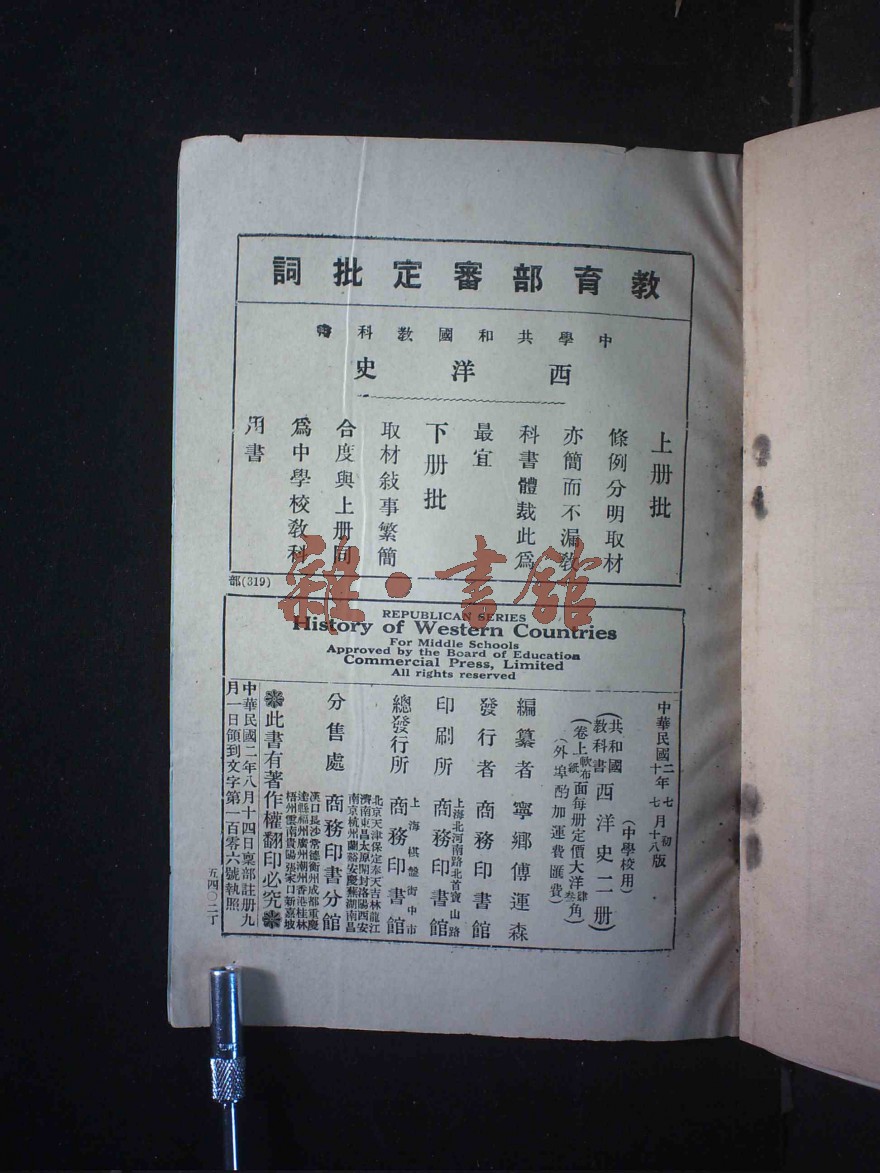 教育部審定批詞
中學共和國教科書
西洋史
上册批
條例分明取材
亦簡而不漏敎
科書體裁此爲
最宜
下册批
取材敍事繁簡
合度與上册同
爲中學校敎科
用書
部(319)
雜·書館
REPUBLICAN SERIES
History of Western Countries
For Middle Schools
Approved by the Board of Education
Commercial Press, Limited
All rights reserved
中華民國二年七月初版
十年七月十八版
(中學校用)
(共和國教科書西洋史二册)
(卷上軟布面每册定價大洋肆角)
紙 叁
(外埠酌加運費匯費)
編纂者 寧鄉傅運森
發行者 商務印書館
上海北河南路北首寶山路
印刷所 商務印書館
上海棋盤街中市
總發行所 商務印書館
北京天津保定奉天吉林龍江
濟南東昌太原開封洛陽西安
南京杭州蘭谿安慶蕪湖南昌
分售處 商務印書分館
漢口長沙常德衡州成都重慶
達縣福州廣州潮州香港桂林
梧州雲南貴陽張家口新嘉坡
此書有著作權翻印必究
中華民國二年八月十四日稟部註册九
月一日領到文字第一百零六號執照
五四〇二丁